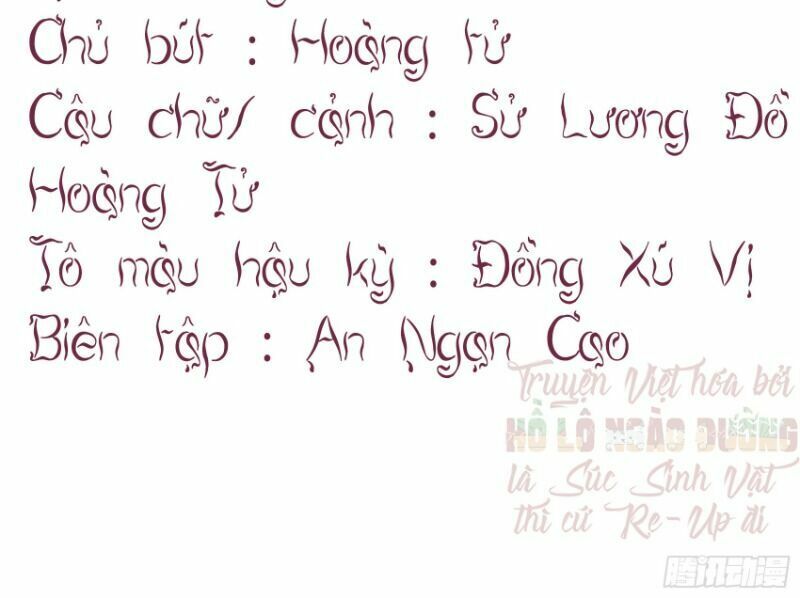 Chủ bút : Hoàng tử
Câu chữ/ cảnh : Sử Lương Đồ
Hoàng Tử
Tô màu hậu kỳ : Đồng Xú Vị
Biên tập : An Ngạn Cạo
Truyện Việt hóa bởi
HỒ LÔ NGÀO ĐƯỜNG
là Súc Sinh Vật
thì cứ Re-Up đi
腾讯动漫